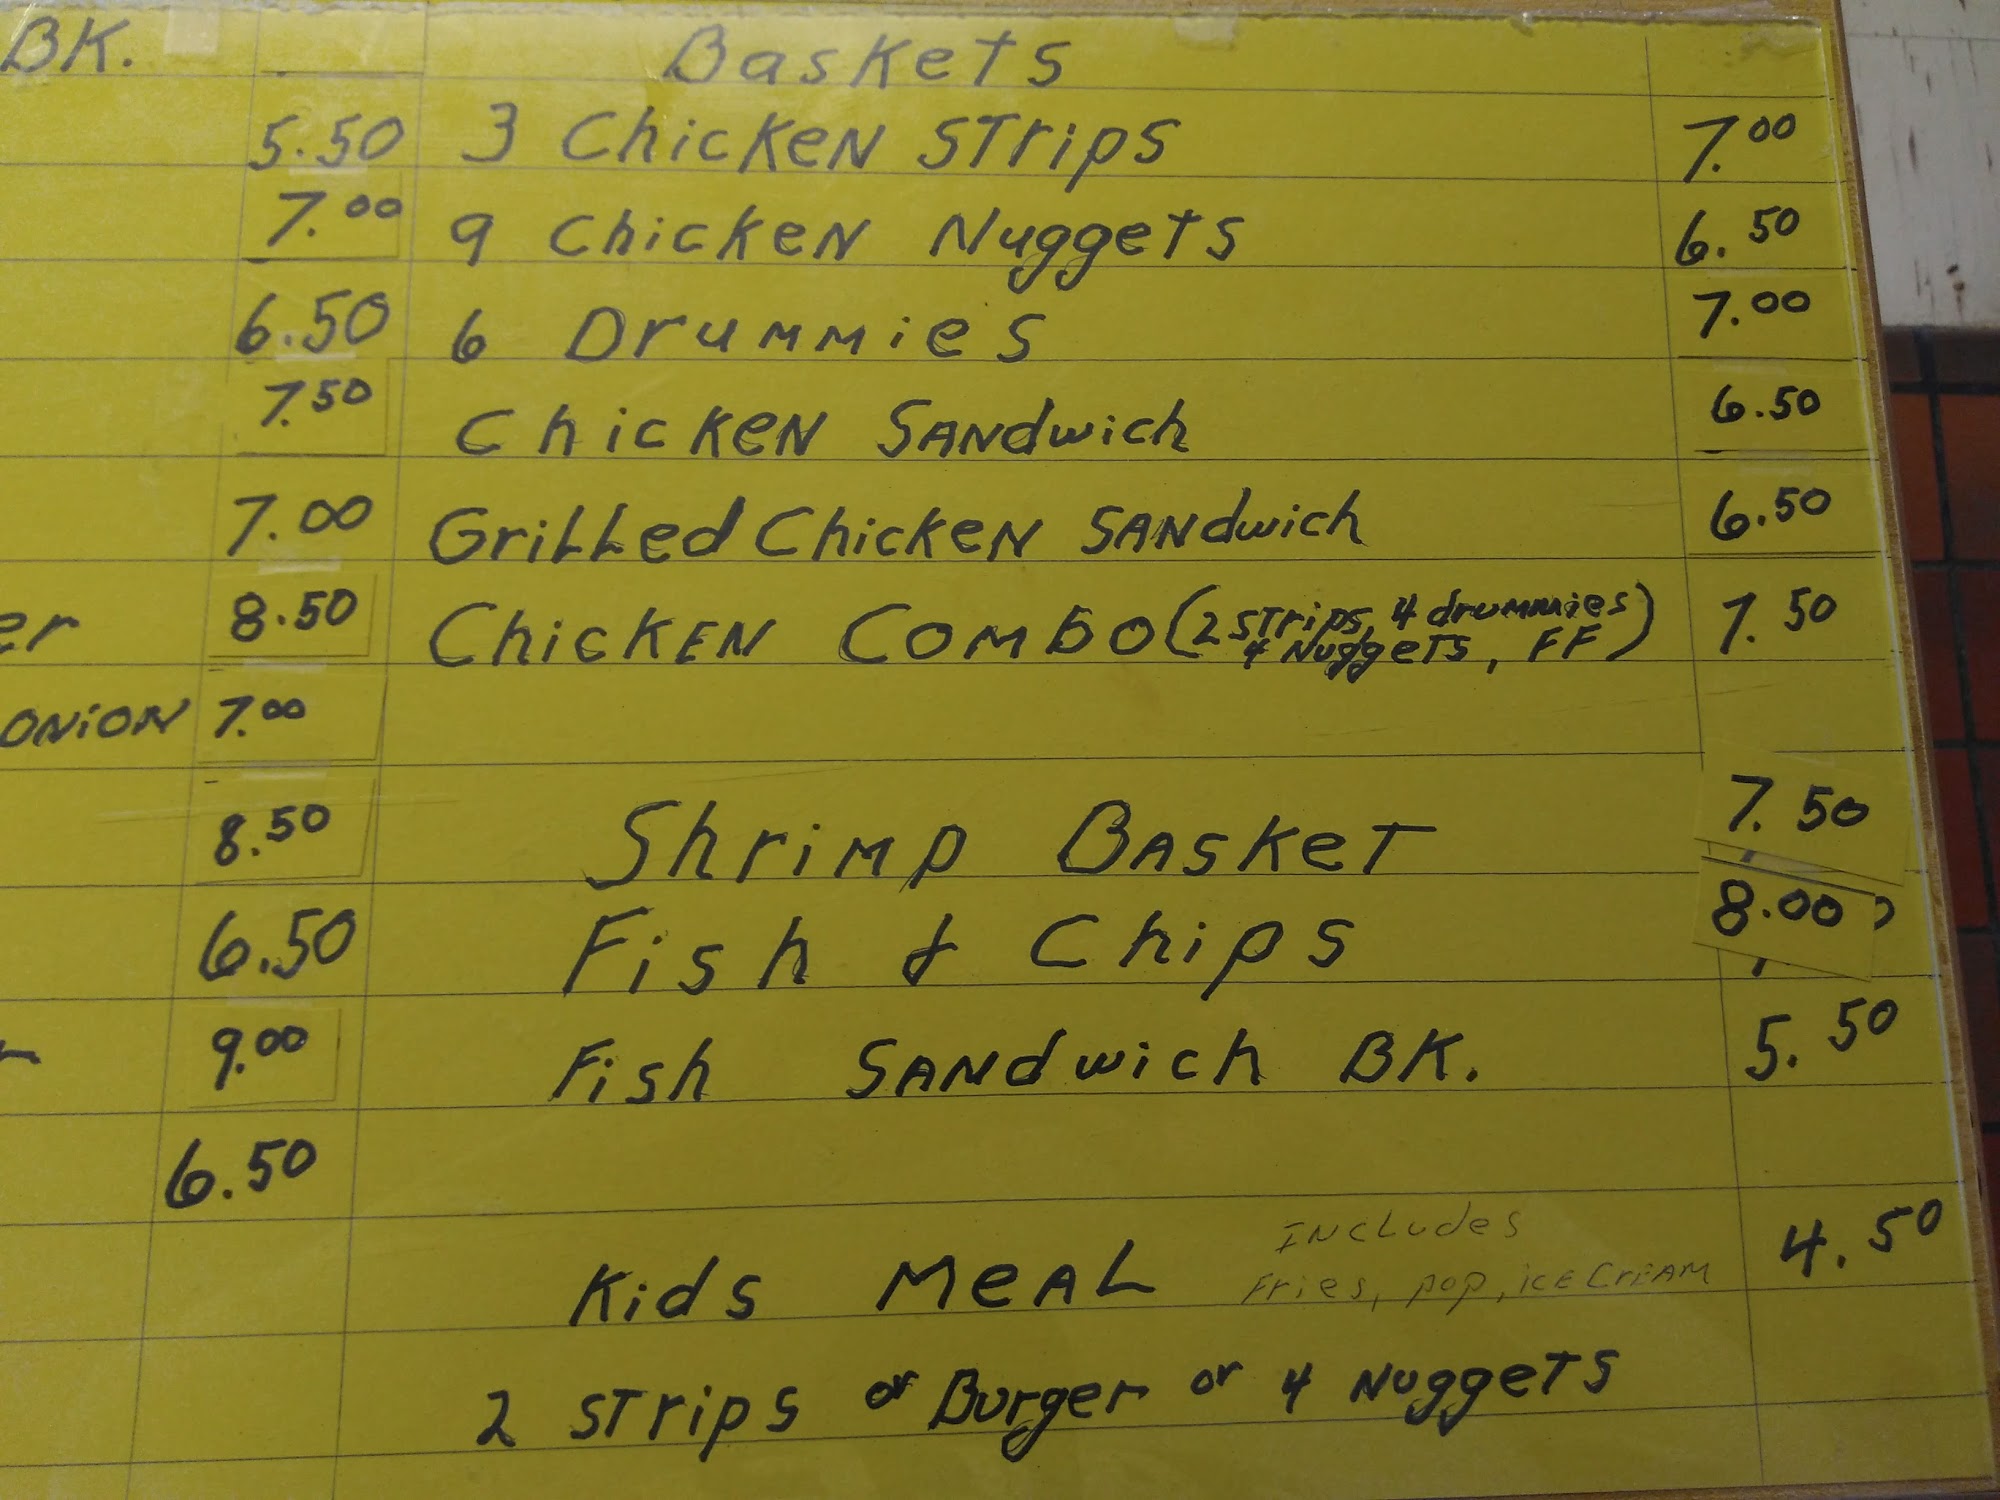 BK. Baskets
5.50 3 Chicken Strips 7.00
7.00 9 Chicken Nuggets 6.50
6.50 6 Drummies 7.00
7.50 Chicken Sandwich 6.50
7.00 Grilled Chicken Sandwich 6.50
er 8.50 Chicken Combo (2 strips, 4 drummies 7.50
4 Nuggets, FF)
ONION 7.00
8.50 Shrimp Basket 7.50
6.50 Fish & Chips 8.00
9.00 Fish Sandwich BK. 5.50
6.50
Kids Meal Includes 4.50
Fries, pop, ice cream
2 strips or Burger or 4 Nuggets